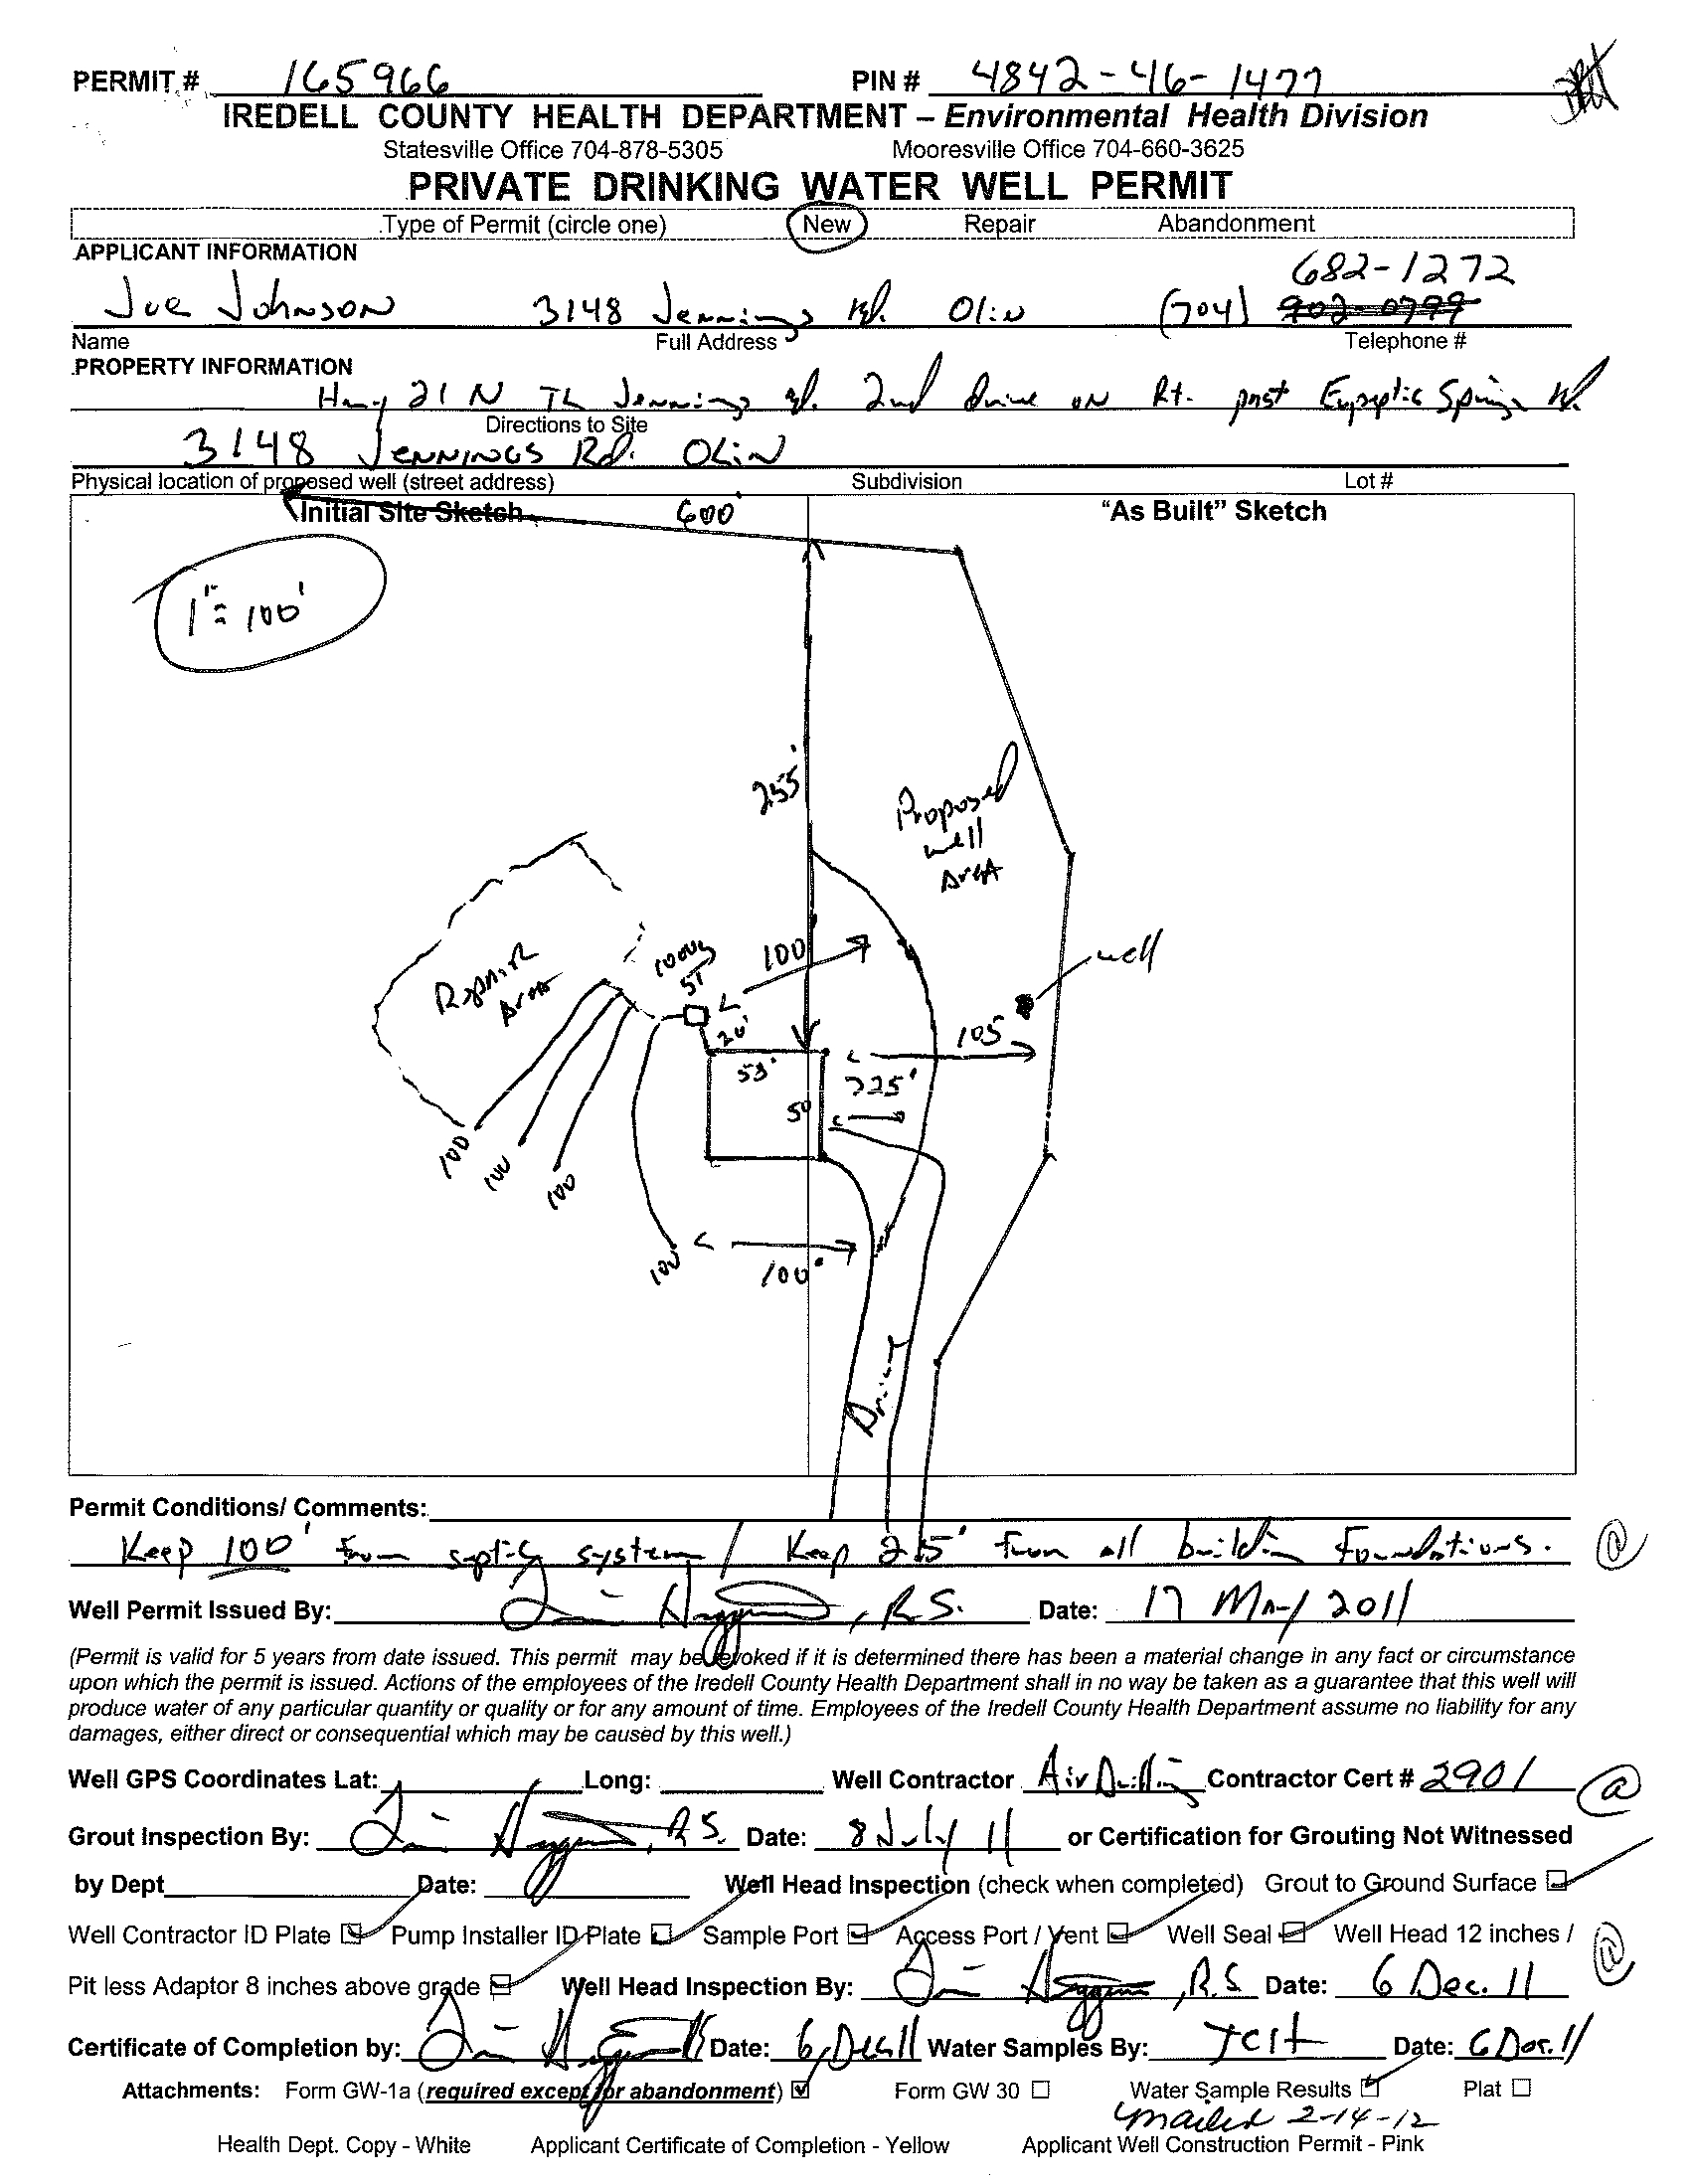 PERMIT # 165966 PIN # 4842-46-1477
IREDELL COUNTY HEALTH DEPARTMENT – Environmental Health Division
Statesville Office 704-878-5305 Mooresville Office 704-660-3625
PRIVATE DRINKING WATER WELL PERMIT
Type of Permit (circle one) New Repair Abandonment
APPLICANT INFORMATION
682-1272
Joe Johnson 3148 Jennings Rd. Olin (704) 902-0799
Name Full Address Telephone #
PROPERTY INFORMATION
Hwy 21 N TL Jennings Rd. 2nd drive on Rt. past Eupeptic Springs Rd.
Directions to Site
3148 Jennings Rd. Olin
Physical location of proposed well (street address) Subdivision Lot #
Initial Site Sketch 600' "As Built" Sketch
1" = 100'
255'
Proposed
well
Area
Repair
Area
1000g
ST
100
well
20'
105
53'
>25'
50
100
100
100
100
100'
Drive
Permit Conditions/ Comments:
Keep 100' from septic system / Keep 25' from all building foundations.
Well Permit Issued By: , R.S. Date: 17 May 2011
(Permit is valid for 5 years from date issued. This permit may be revoked if it is determined there has been a material change in any fact or circumstance
upon which the permit is issued. Actions of the employees of the Iredell County Health Department shall in no way be taken as a guarantee that this well will
produce water of any particular quantity or quality or for any amount of time. Employees of the Iredell County Health Department assume no liability for any
damages, either direct or consequential which may be caused by this well.)
Well GPS Coordinates Lat: Long: Well Contractor Air Drilling Contractor Cert # 2901
Grout Inspection By: , R.S. Date: 8 July 11 or Certification for Grouting Not Witnessed
by Dept Date: Well Head Inspection (check when completed) Grout to Ground Surface
Well Contractor ID Plate Pump Installer ID Plate Sample Port Access Port / Vent Well Seal Well Head 12 inches /
Pit less Adaptor 8 inches above grade Well Head Inspection By: , R.S. Date: 6 Dec. 11
Certificate of Completion by: Date: 6 Dec 11 Water Samples By: JCH Date: 6 Dec. 11
Attachments: Form GW-1a (required except for abandonment) Form GW 30 Water Sample Results Plat
mailed 2-14-12
Health Dept. Copy - White Applicant Certificate of Completion - Yellow Applicant Well Construction Permit - Pink